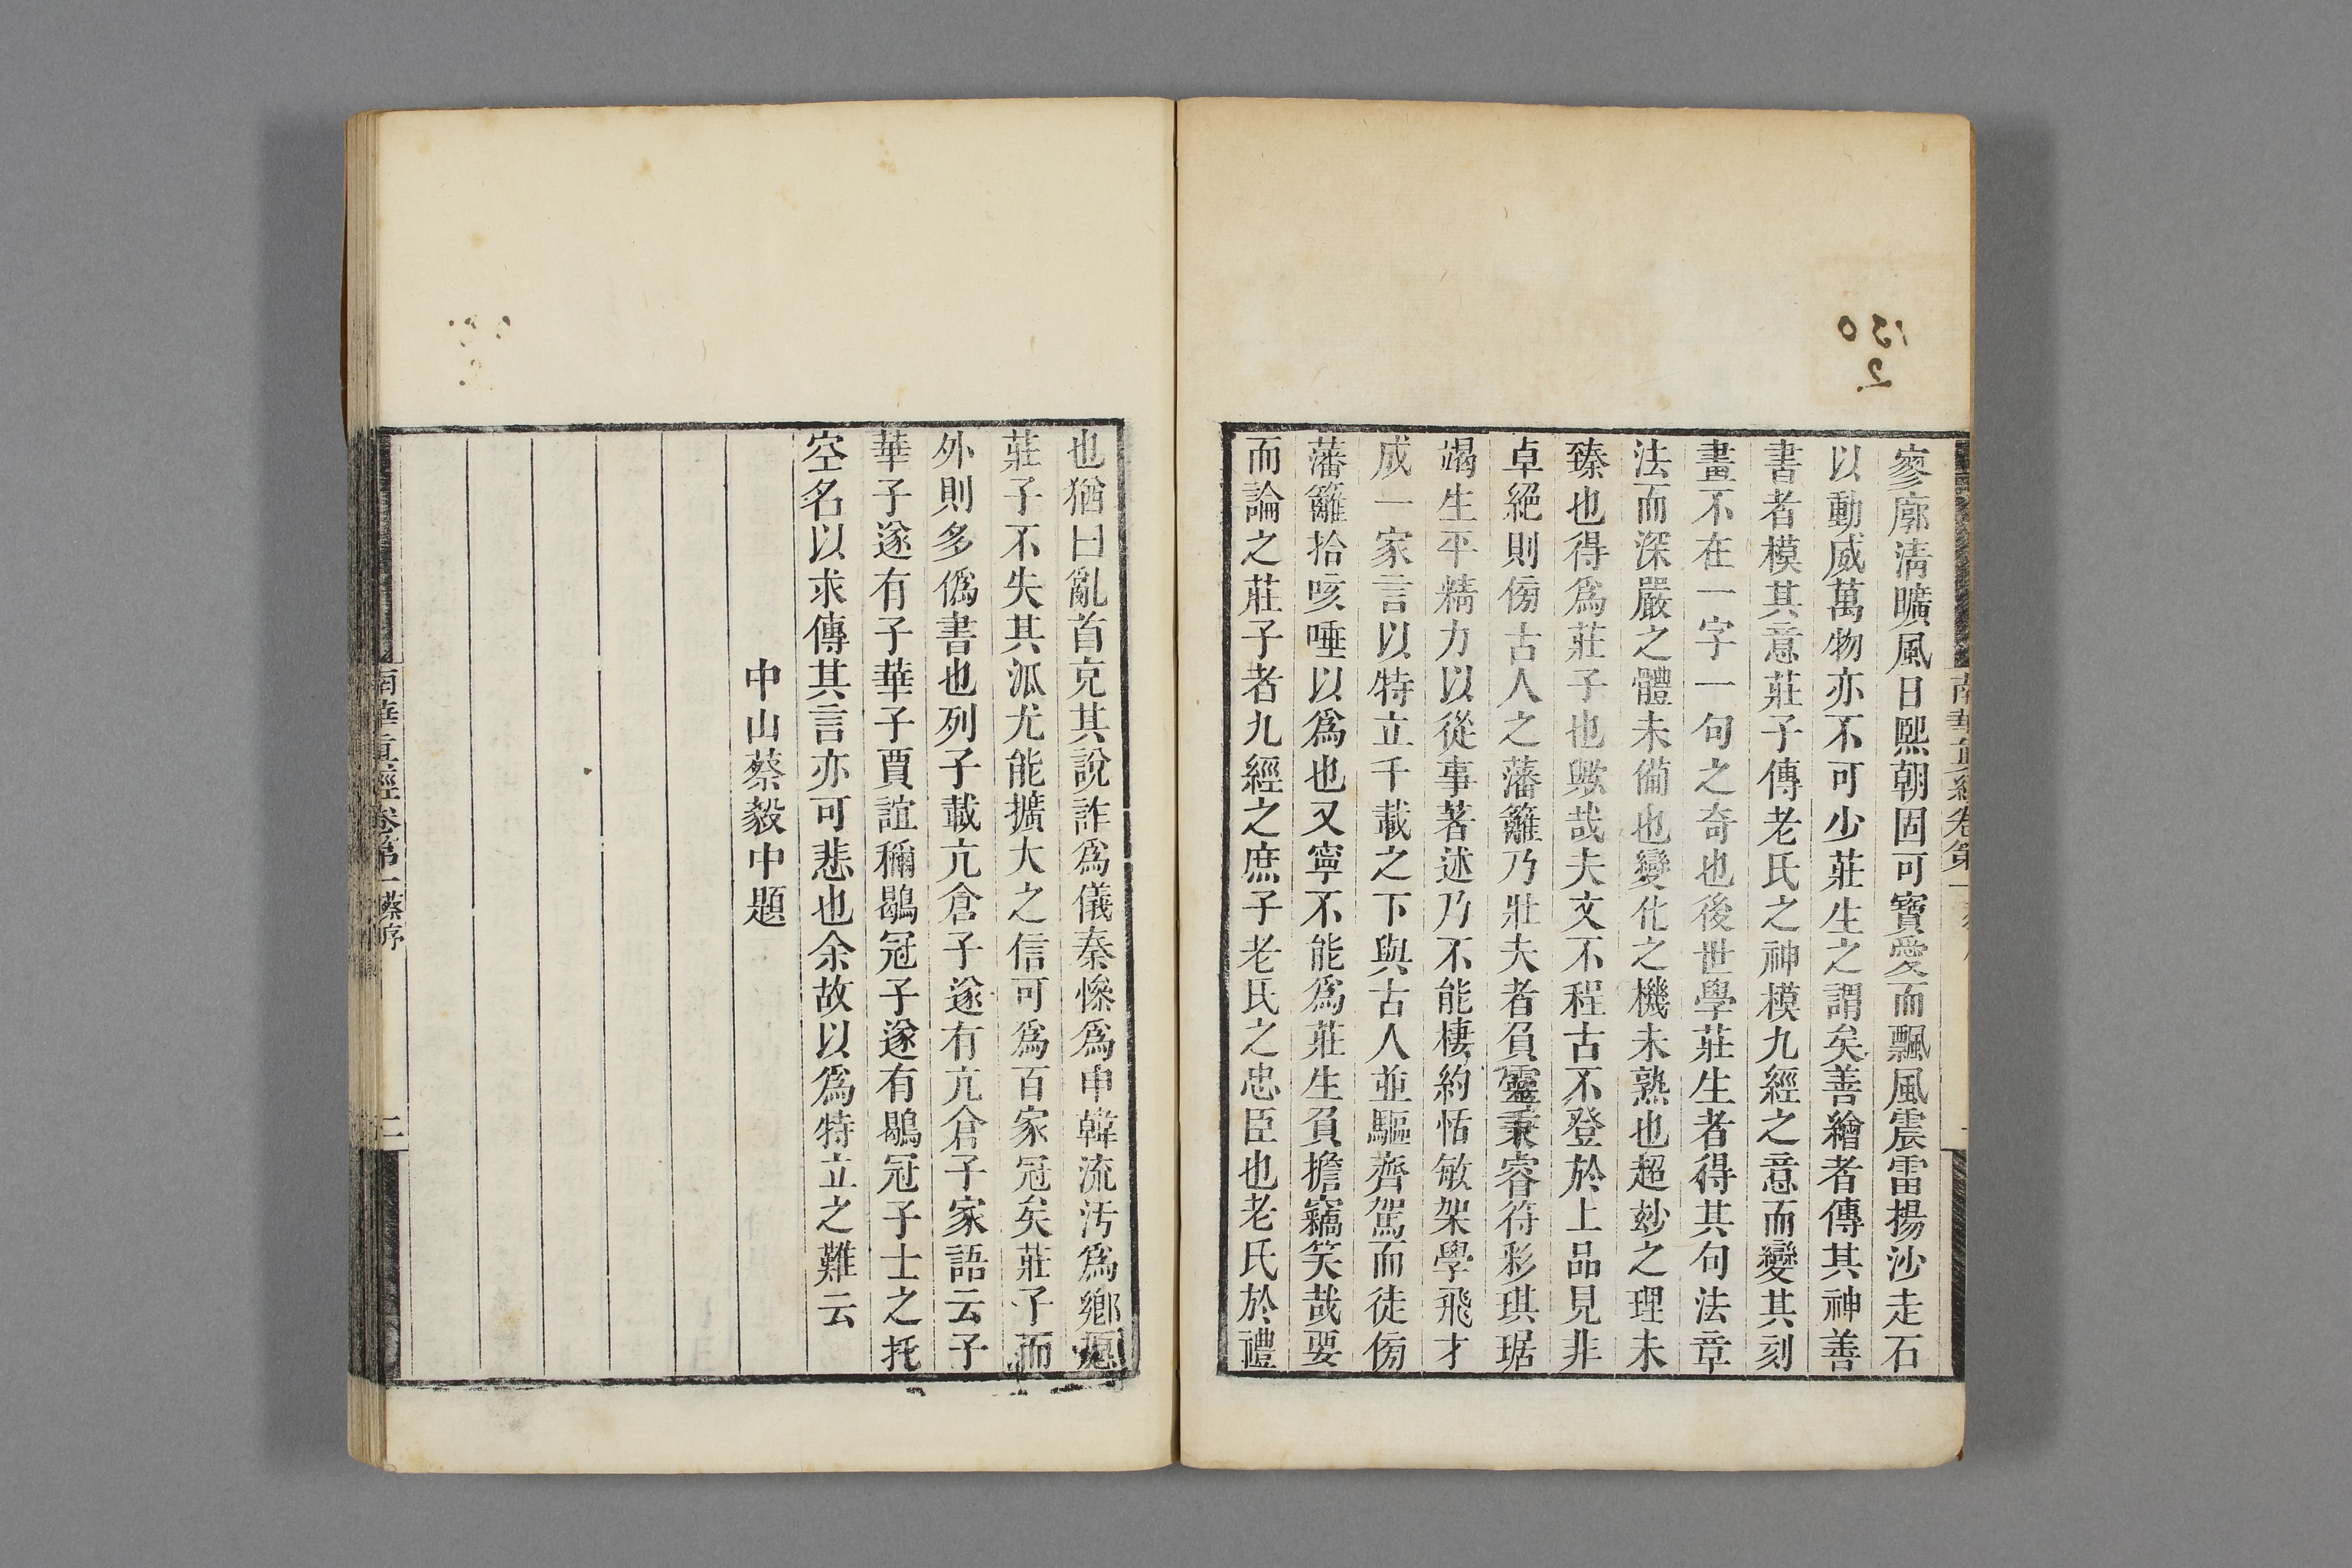 寥廓淸曠風日熙朝固可寶愛而飄風震雷揚沙走石
以動威萬物亦不可少莊生之謂矣善繪者傳其神善
書者模其意莊子傳老氏之神模九經之意而變其刻
畫不在一字一句之奇也後世學莊生者得其句法章
法而深嚴之體未備也變化之機未熟也超玅之理未
臻也得爲莊子也歟哉夫文不程古不登於上品見非
卓絕則傍古人之藩籬乃壯夫者負靈秉睿符彩琪琚
竭生平精力以從事著述乃不能棲約恬敏架學飛才
成一家言以特立千載之下與古人並驅齊駕而徒傍
藩籬拾咳唾以爲也又寧不能爲莊生負擔竊笑哉要
而論之莊子者九經之庶子老氏之忠臣也老氏於禮
也猶曰亂首克其說詐爲儀秦慘爲申韓流汚爲鄉愿
莊子不失其派尤能擴大之信可爲百家冠矣莊子而
外則多僞書也列子載亢倉子遂有亢倉子家語云子
華子遂有子華子賈誼稱鶡冠子遂有鶡冠子士之托
空名以求傳其言亦可悲也余故以爲特立之難云
中山蔡毅中題
南華眞經卷第一 蔡序
二